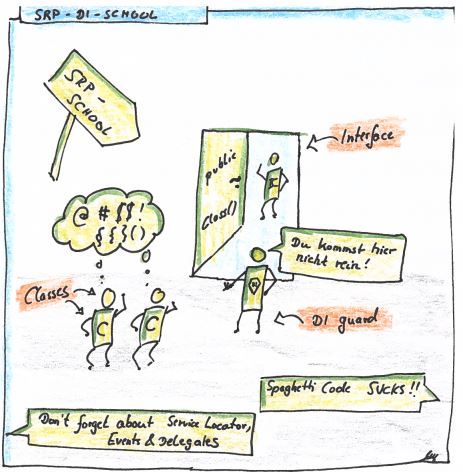 SRP - DI - SCHOOL
SRP -
SCHOOL
Interface
public
Class()
I
@ # § § !
{ { } ( )
Du kommst hier
nicht rein!
Classes
C
C
DI
DI guard
Spaghetti Code SUCKS!!
Don't forget about Service Locator,
Events & Delegates